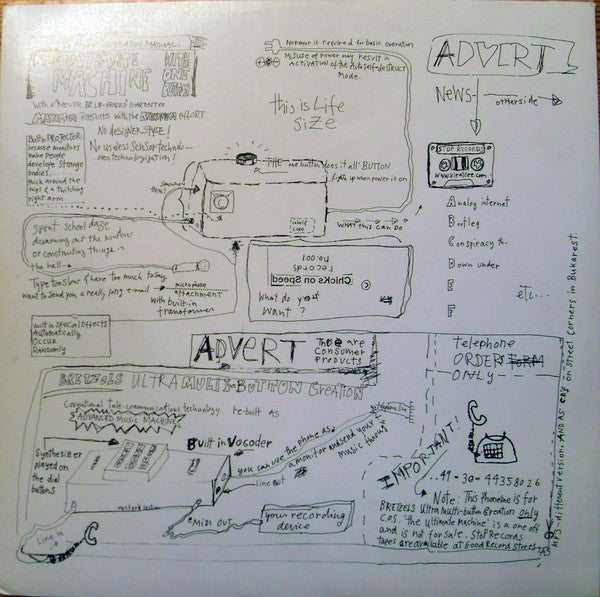 OPERATION MANUAL
THE ULTIMATE
MACHINE
WITH
ONE
BUTTON
WITH A NEVER BE UP-DATED GUARANTEE
MAXIMUM RESULTS WITH THE MINIMUM EFFORT
NO DESIGNER STYLE!
NO USELESS SENSOR TECHNO-
Built in PROJECTOR
because monitors
make People
develope Strange
bodies.
thick around the
hips & a twitching
right arm
No power is required for basic operation
Misuse of Power may result in
ACTIVATION OF the Auto self-destruct
Mode.
this is Life
size
THE 'one button does it all' BUTTON
lights up when power is on
Spent school daze
dreaming out the window
or constructing things in
the hall
Type too slow & have too much to say
want to send you a really long e-mail
microphone
attachment
With built-in
transformer
WHAT THIS CAN DO
No. 001
records
Chicks on Speed
What do you
Want ?
built in special Effects
Automatically
OCCUR
RANDOMLY
ADVERT
NEWS
otherside
STOP RECORDS
Analog internet
Bootleg
Conspiracy th.
Down under
E
F
etc...
on street corners in Bukarest.
MP3 - different version. AND AS
ADVERT
These are
Consumer
Products
BRETZELS ULTRA MULTI-BUTTON CREATION
Conventional Tele-communications technology re-built as
ADVANCED MUSIC MACHINE
Synthesizer
played on
the dial
buttons
Built in Vocoder
you can use the phone as
a monitor and send your
music through
telephone line
line out
Line in
MIDI OUT
your recording
device
telephone
ORDERS FORM
ONLY
IMPORTANT!
..49-30-44358026
Note: This phoneline is for
BRETZELS Ultra Multi-button Creation only
COS. 'the Ultimate machine' is a one off
and is not for sale. Stop Records
tapes are available at Good Record Stores